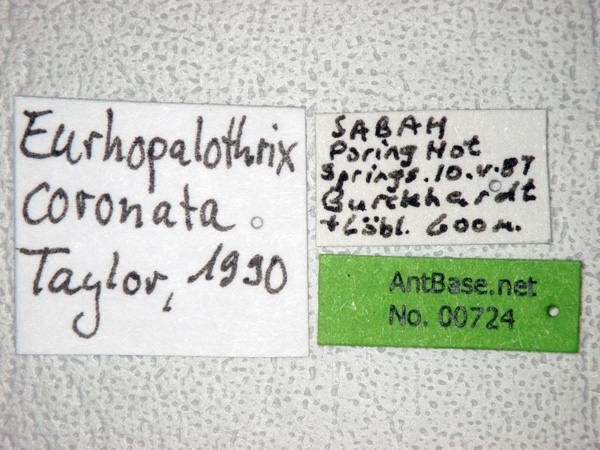 Eurhopalothrix
coronata
Taylor, 1990
SABAH
Poring Hot
Springs. 10.V.87
Burckhardt
+ Löbl. 600 m.
AntBase.net
No. 00724